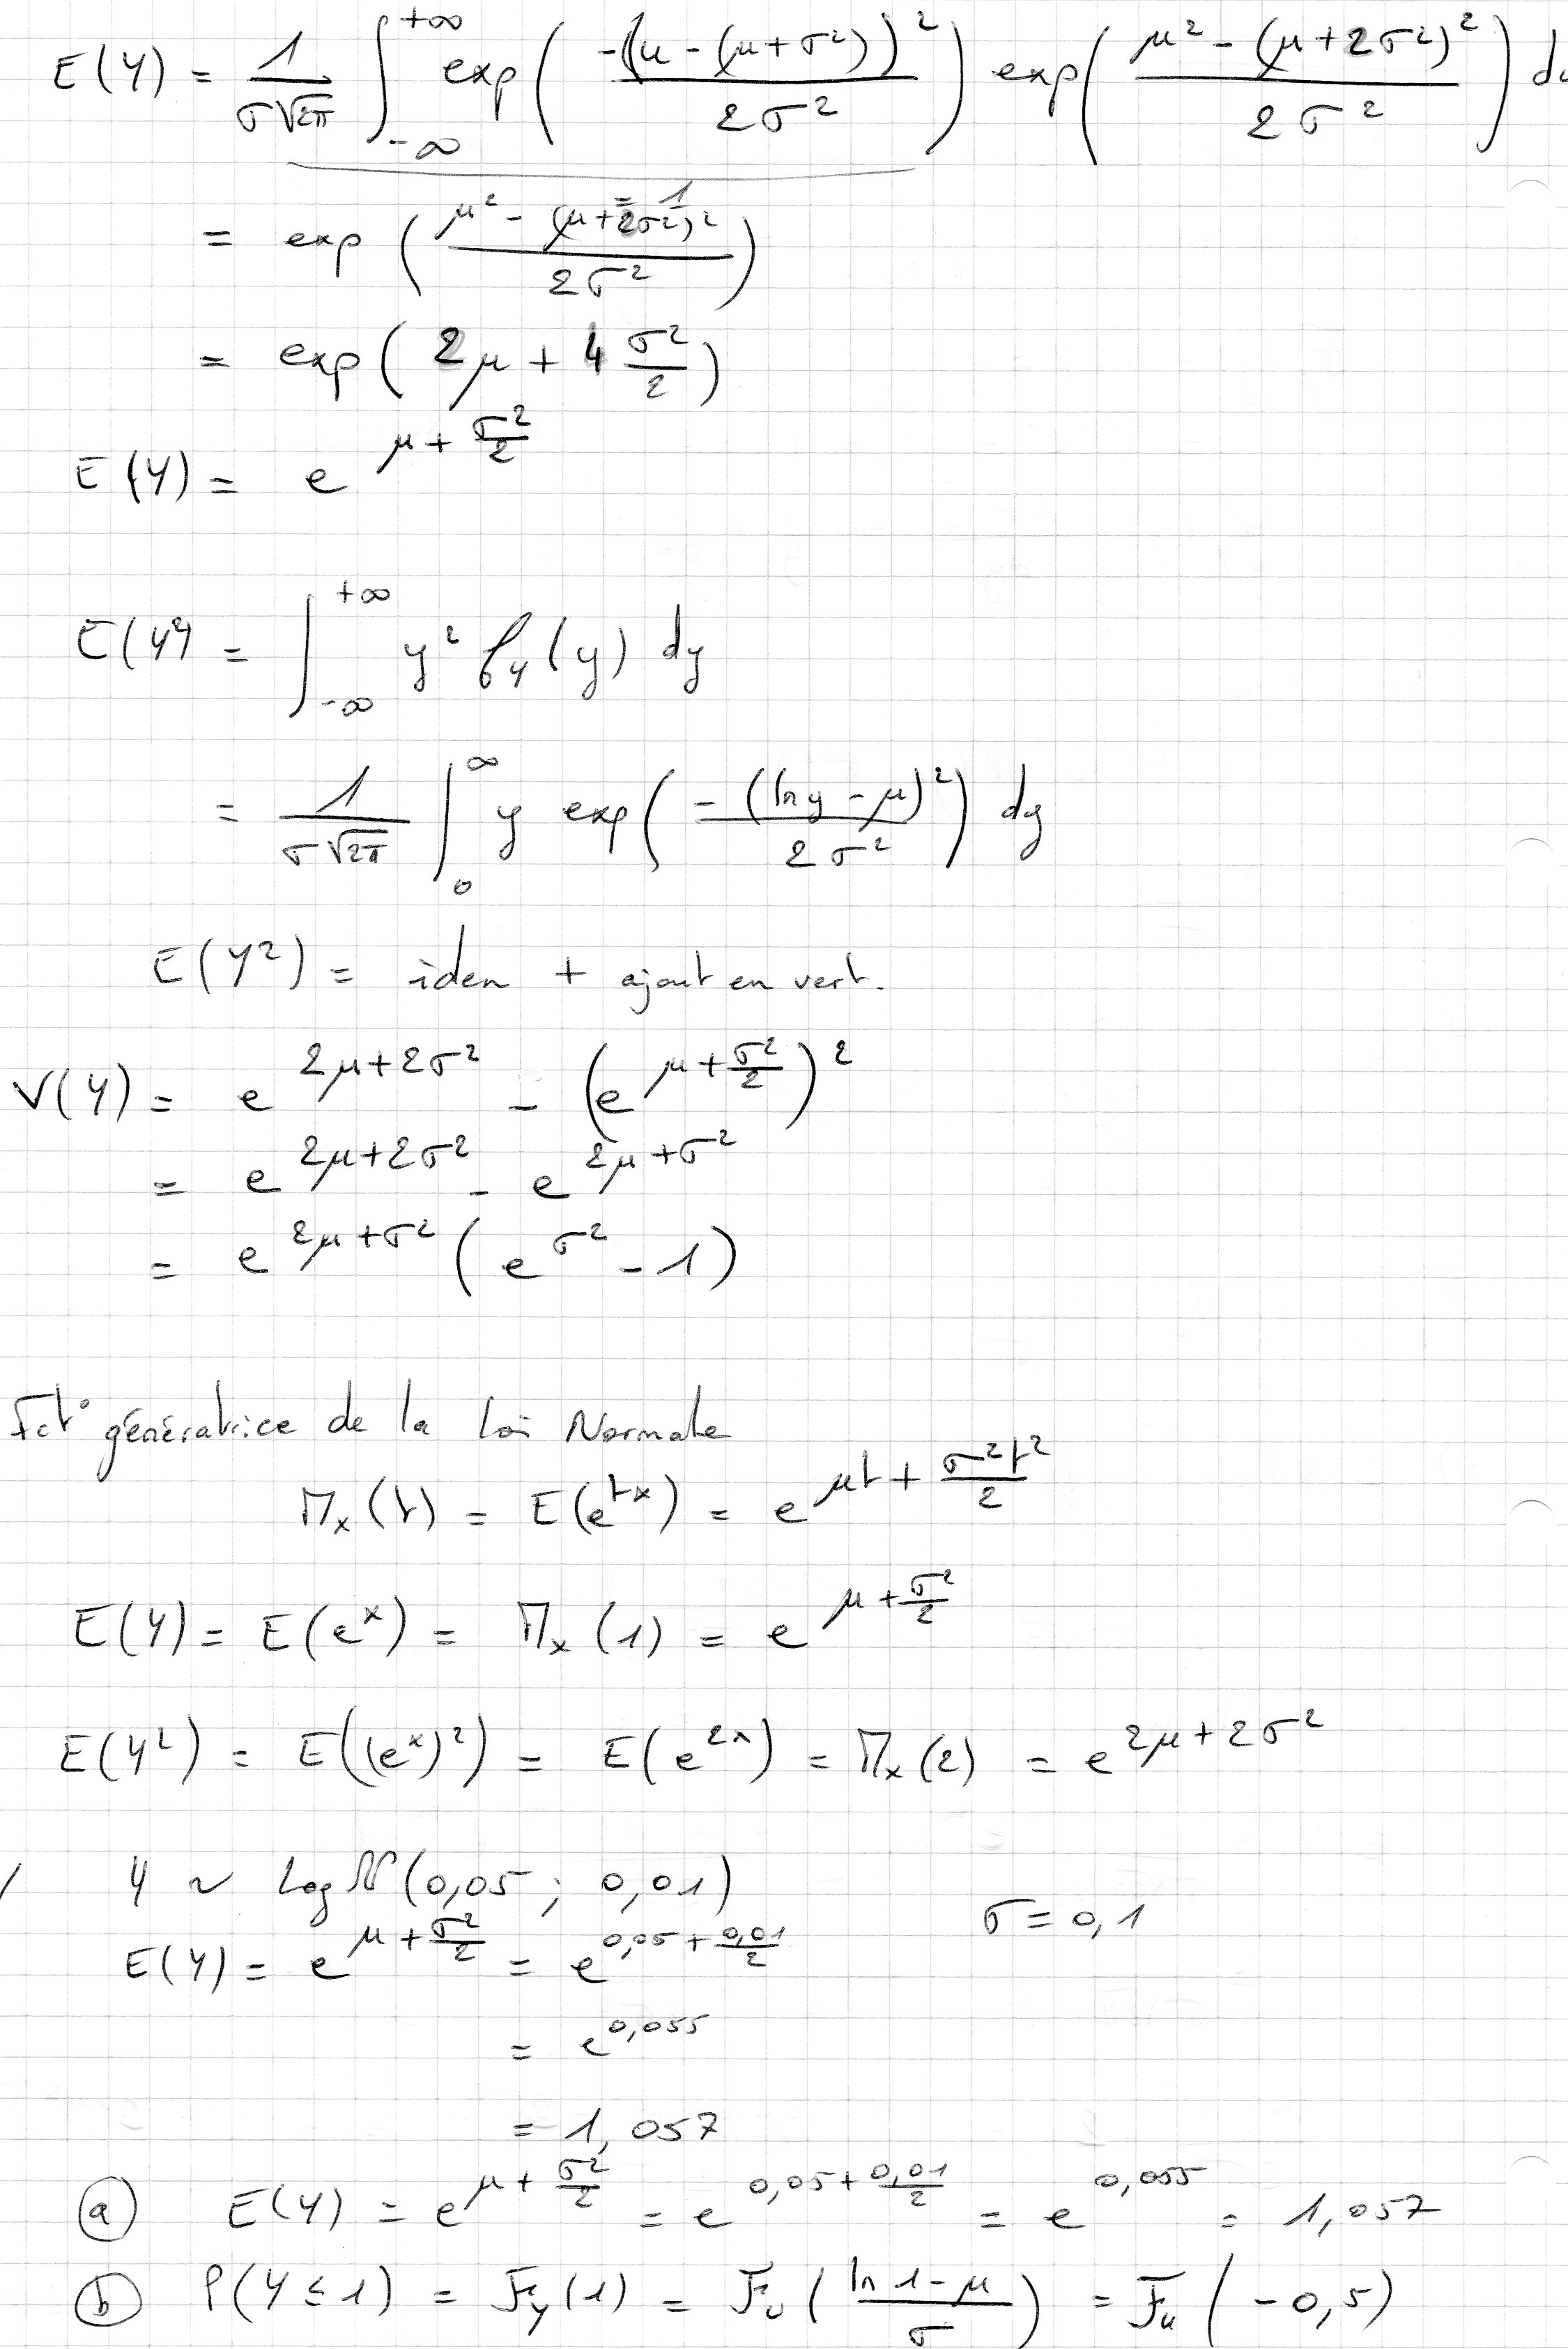 E(Y) = 1/(σ√2π) ∫_{-∞}^{+∞} exp( -(u - (μ+σ²))² / 2σ² ) exp( μ² - (μ+2σ²)² / 2σ² ) du
= 1
= exp( μ² - (μ+2σ²)² / 2σ² )
= exp( 2μ + 4 σ²/2 )
E(Y) = e^{μ + σ²/2}
E(Y²) = ∫_{-∞}^{+∞} y² f_Y(y) dy
= 1/(σ√2π) ∫_0^∞ y exp( -(ln y - μ)² / 2σ² ) dy
E(Y²) = idem + ajout en vert.
V(Y) = e^{2μ+2σ²} - (e^{μ+σ²/2})²
= e^{2μ+2σ²} - e^{2μ+σ²}
= e^{2μ+σ²} (e^{σ²} - 1)
Fct° génératrice de la loi Normale
M_x(t) = E(e^{tx}) = e^{μt + σ²t²/2}
E(Y) = E(e^x) = M_x(1) = e^{μ+σ²/2}
E(Y²) = E((e^x)²) = E(e^{2x}) = M_x(2) = e^{2μ+2σ²}
Y ~ Log N(0,05 ; 0,01)
σ = 0,1
E(Y) = e^{μ+σ²/2} = e^{0,05+0,01/2}
= e^{0,055}
= 1,057
(a) E(Y) = e^{μ+σ²/2} = e^{0,05+0,01/2} = e^{0,055} = 1,057
(b) P(Y ≤ 1) = F_y(1) = F_u( (ln 1 - μ)/σ ) = F_u(-0,5)